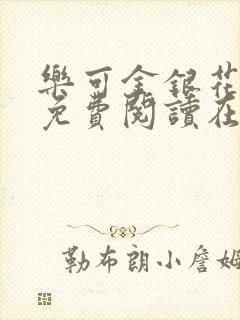 樂可金銀花
免費閱讀在
勒布朗小詹姆